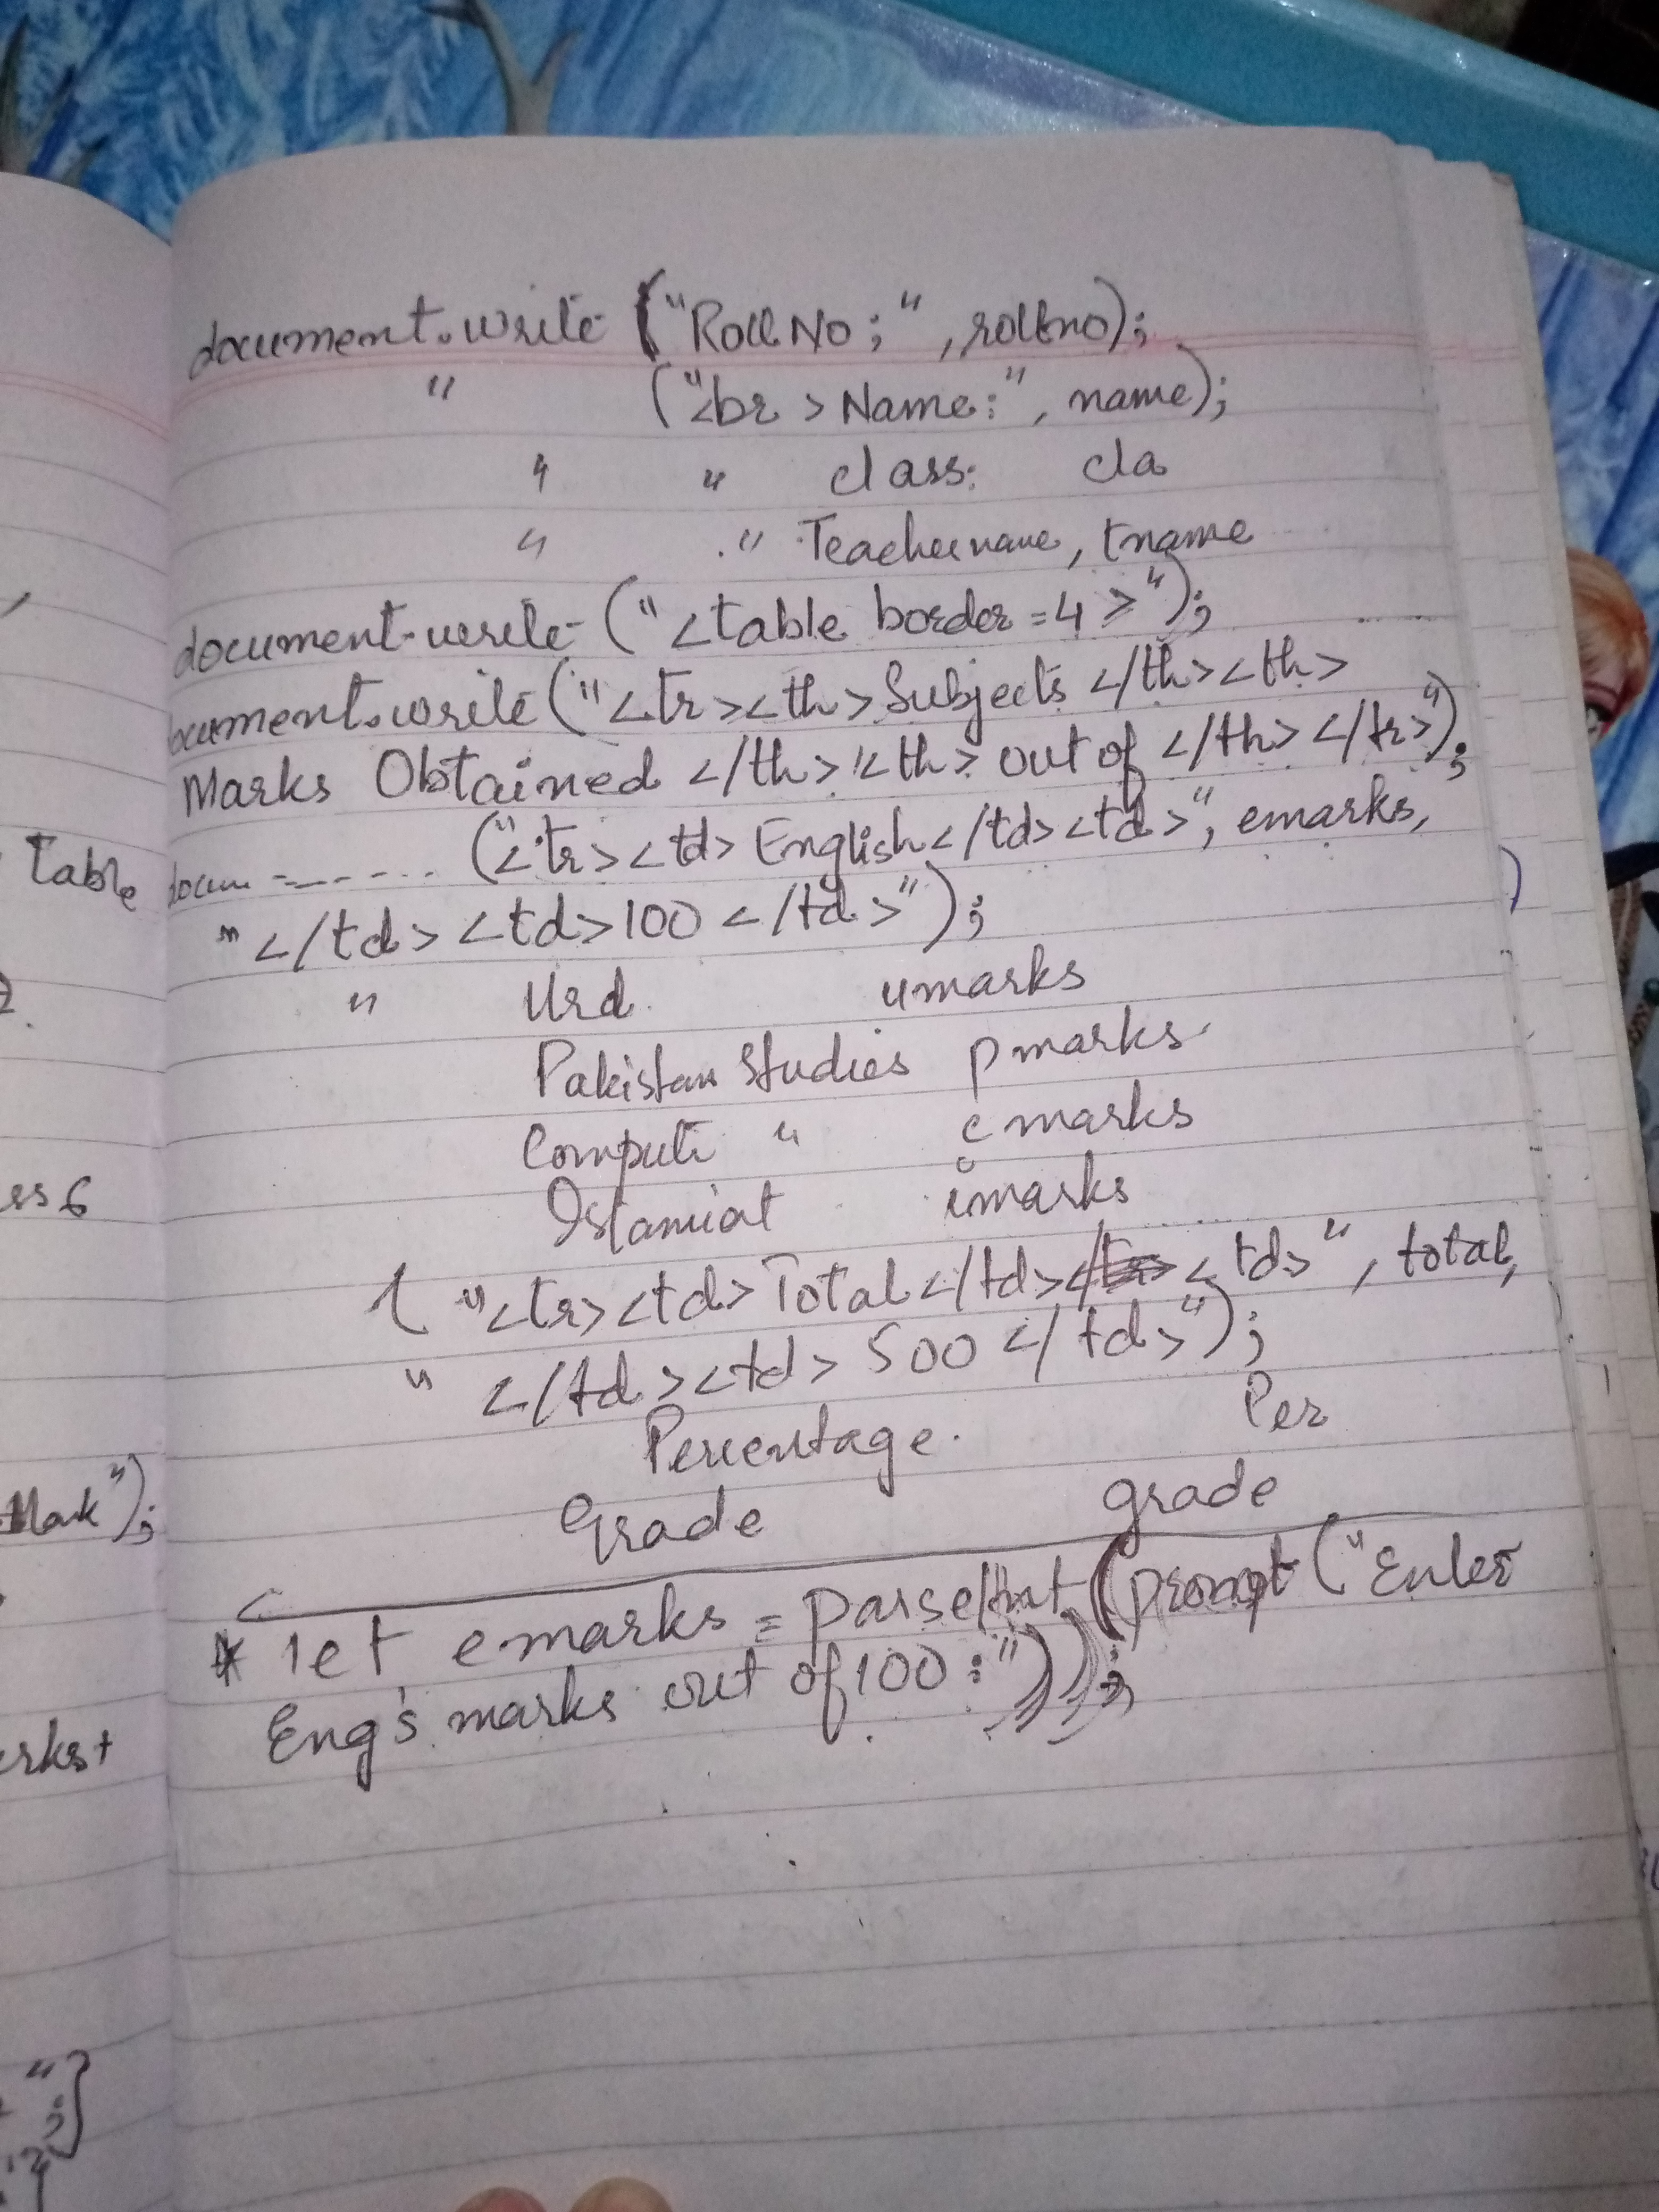 document.write ("Roll No ; " , rollno);
" ("<br > Name : " , name);
" " class: cla
" " Teachername , tname
document.write ("<table border = 4 >");
ocument.write ("<tr><th>Subjects </th><th>
Marks Obtained </th><th> out of </th> </tr>");
docum ------- ("<tr><td> English </td><td>" , emarks,
" </td><td>100 </td>");
" Urd. umarks
Pakistan Studies pmarks
Compute " cmarks
Islamiat imarks
( "<tr><td>Total </td> <td>" , total,
" </td><td> 500 </td>");
Percentage. Per
Grade grade
* let emarks = parseInt (prompt ("Enter
Eng's marks out of 100 : "));
Table
ss 6
Mark");
rks +
" ;}